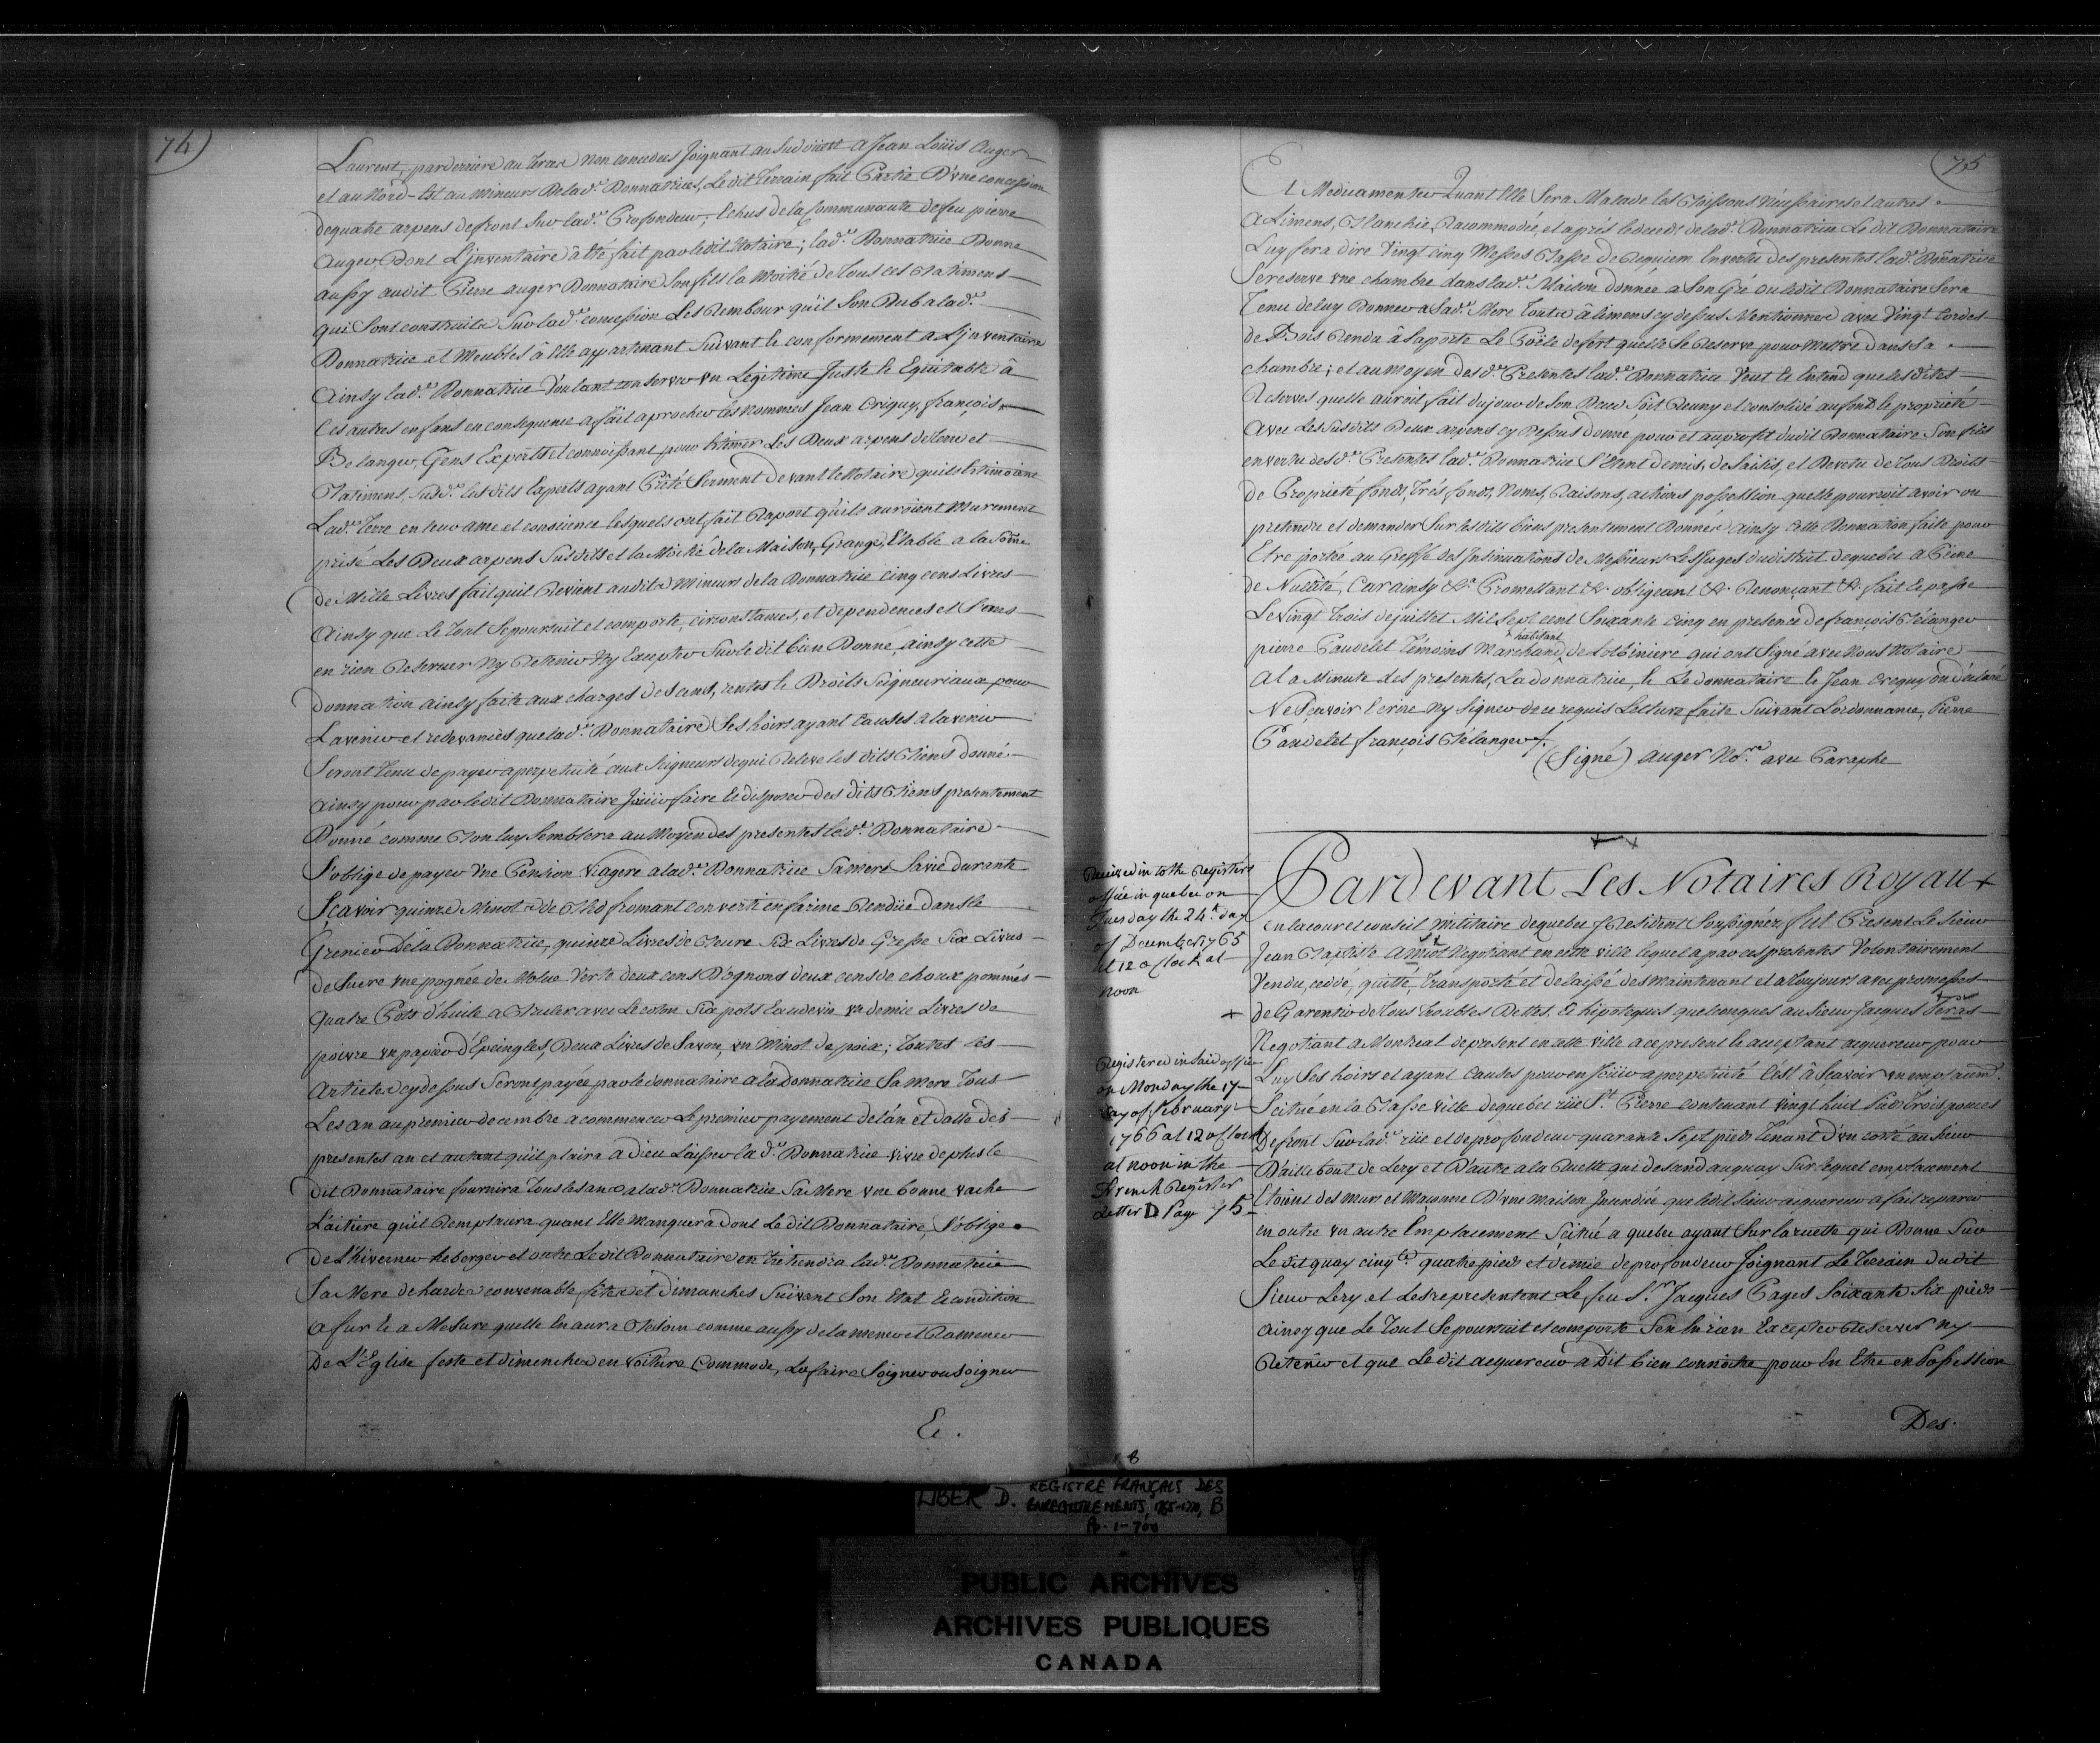 74
Laurent, par derriere au terres non concedees Joignant au Sud ouest a Jean Loüis Auger
et au Nord-Est au Mineurs De lad.e Donnatrice, Le dit terrain fait Partie D'une concession
de quatre arpens de front Sur lad.e Profondeur; Echus de la Communaute de feu pierre
Auger Dont L'jnventaire à été fait par ledit Notaire; lad.e Donnatrice Donne
aussy audit Pierre auger Donnataire Son fils la Moitié de Tous les Batimens
qui Sont construits Sur lad.e concession Les Rembour qu'il Son Dub a lad.e
Donnatrice et Meubles à Elle appartenant Suivant le conformement a L'jnventaire
Ainsy lad.e Donnatrice Voulant conserver un Legitime Juste & Equitable â
Ces autres enfans en consequence a fait aprocher les nommés Jean Criquy, françois
Belanger, Gens Experts et connoissant pour Estimer Les Deux arpens de Terre et
Batimens, Susd.s les dits Experts ayant Prêté Serment Devant le Notaire qu'ils Estimoient
Lad.e Terre en leur ame et consience lesquels ont fait Raport qu'ils auroient Murement
prisé Les Deux arpens Susdits et la Moitié de la Maison, Grange, Etable a la Som̃e
De Mille Livres fait quil Revient audits Mineurs de la Donnatrice cinq cens Livres
Ainsy que Le Tout Se poursuit et comporte, circonstances, et dependences et Sans
en rien Reserver Ny Retenir Ny Excepter Sur le dit bien Donné, ainsy cette
Donnation ainsy faite aux charges des cens, rentes & Droits Seigneuriaux pour
L'avenir et redevances que lad.e Donnataire Ses hoirs ayant Causes a lavenir
Seront Tenu de payer a perpetuité aux Seigneurs de qui Releve les dits Biens donné
Ainsy pour par ledit Donnataire Joüir faire & disposer des dits Biens presentement
Donné comme Bon luy Semblera au Moyen des presentes led.e Donnataire
S'oblige de payer Une Pension Viagere a lad.e Donnatrice Sa mere Savie durante
Sçavoir quinze Minots de Bled fromant converti en farine Rendüe dans le
Grenier De la Donnatrice, quinze Livres de Beure Six Livres de Gresse Six Livres
de Sucre une pognée de Molue Verte deux cens D'ognons deux cens de choux pommés
Quatre Pots d'huile a Bruler avec Le coton Six pots Eaudevie un demie Livres de
poivre un papier d'Epeingles, Deux Livres de Savon, un Minot de poix; Toutes Les
Articles cy dessus Seront payée par le donnataire a la Donnatrice Sa Mere Tous
Les an au premier decembre a commencer Le premier payement de l'an et datte des
presentes an et autant qu'il plaira a Dieu Laisser la d.e Donnatrice vivre de plus le
dit Donnataire fournira Tous les ans a lad.e Donnatrice Sa Mere une bonne vache
Laitiere qu'il Remplacera quant Elle Manquera dont Le dit Donnataire, S'oblige
de L'hiverner heberger et outre Le dit Donnataire entretiendra lad.e Donnatrice
Sa Mere de hardes convenable fêtes et Dimanches Suivant Son Etat & condition
a fur & a Mesure quelle En aura Besoin comme aussy de la mener et Ramener
De L'Eglise feste et dimenches en Voiture Commode, La faire Soigner ou Soigner
Et.
75
Et Medicamenter Quant Elle Sera Malade les Boissons Nécessaires et autres
Alimens, Blanchie, Racommodée, et aprés le decede de lad.e Donnatrice Le dit Donnataire
Luy fera dire Vingt cinq Messes Basse de Requiem En vertu des presentes lad.e Don̄atrice
Se reserve une chambre dans lad.e Maison donnée a Son Gré ou ledit Donnataire Sera
Tenu de luy Donner a Sad.e Mere Toutes âlimens cy dessus Mentionnes avec Vingt Cordes
de Bois Rendu â Saporte Le Poële de fert quelle Se Reserve pour Mettre Dans Sa
chambre; et au moyen des d.e Presentes lad.e Donnatrice Veut & Entend que les dites
Reserves quelle auroit fait du jour de Son Deces Soit Reuny et consolidé au fond & propriété
Avec Les Susdits Deux arpens cy Dessus donné pour et au profit dudit Donnataire Son fils
en vertu des d.e Presentes lad.e Donnatrice S'etant demis, de Saisis, et Devetu de Tous Droits
de Proprieté fonds, trés fonds, Noms, Raisons, actions possession quelle pourroit avoir ou
pretendre et demander Sur les dits biens presentement Donnés ainsy cette Donnation faite pour
Etre portée au Greffe des Insinuations de Messieurs Les Juges du district de quebec a Peine
de Nullité, Car ainsy &.a Promettant &.a obligeant &.a Renonçant &.a fait & passe
Le vingt Trois de juillet Mil Sept cent Soixante Cinq en presence de françois Bélanger
habitant
pierre Gaudelet témoins Marchand, de Lotbiniere qui ont Signé avec Nous Notaire
A la Minute des presentes, La donnatrice, & Le donnataire & Jean Criquy on déclaré
Ne Sçavoir Ecrire Ny Signer de ce requis Lecture faite Suivant Lordonnance, Pierre
Gaudelet françois Bélanger.
(Signé) auger No.re avec Paraphe
Received in to the Registers
office in quebec on
Tuesday the 24.th day
of December 1765
at 12 o Clock at
Noon
Registered in Said office
on Monday the 17
day of February
1766 at 12 o Clock
at noon in the
French Register
Letter D Page 75
Pardevant Les Notaires Royaux
en la cour et conseil Militaire de quebec y Resident Soussignés fut Present Le Sieur
Jean Baptiste Amiot Negotiant en cette ville lequel a par ces presentes Volontairement
Vendu, ceddé, quitté, Transporté et delaissé des Maintenant et a Toujours avec promesses
de Garentir de Tous Troubles Dettes, & hipoteques quelconques au Sieur Jacques Teras
Negotiant a Montreal de present en cette ville a ce present & acceptant acquereur pour
Luy Ses hoirs et ayant Causes pour en Joüir a perpetuité C'est â Sçavoir un emplacem.t
Scitué en la Basse ville de quebec rüe S.t Pierre contenant vingt huit pieds Trois pouces
De front Sur lad.e rüe et de profondeur quarante Sept pieds tenant D'un coté au Sieur
D'aillebout de Lery et D'autre a la Ruelle qui desand au quay Sur lequel emplacement
Etoient des Murs et Masonne D'une Maison Incendiée que ledit Sieur acquereur a fait reparer
en outre un autre Emplacement Scitué a quebec ayant Sur la ruelle qui Donne Sur
Le dit quay cinq.te quatre pieds et demie de profondeur Joignant Le Terrain du dit
Sieur Lery et Les representent Le feu S.r Jacques Pages Soixante Six pieds
Ainsy que Le Tout Se poursuit et comporte S'en En rien Excepter Reserver ny
Retenir et que Le dit acquereur a Dit bien connoitre pour En Etre en Possession
Des.
8
LIBER D. REGISTRE FRANÇAIS DES
ENREGISTREMENTS, 1765-1770, B
Pp. 1-700
PUBLIC ARCHIVES
ARCHIVES PUBLIQUES
CANADA